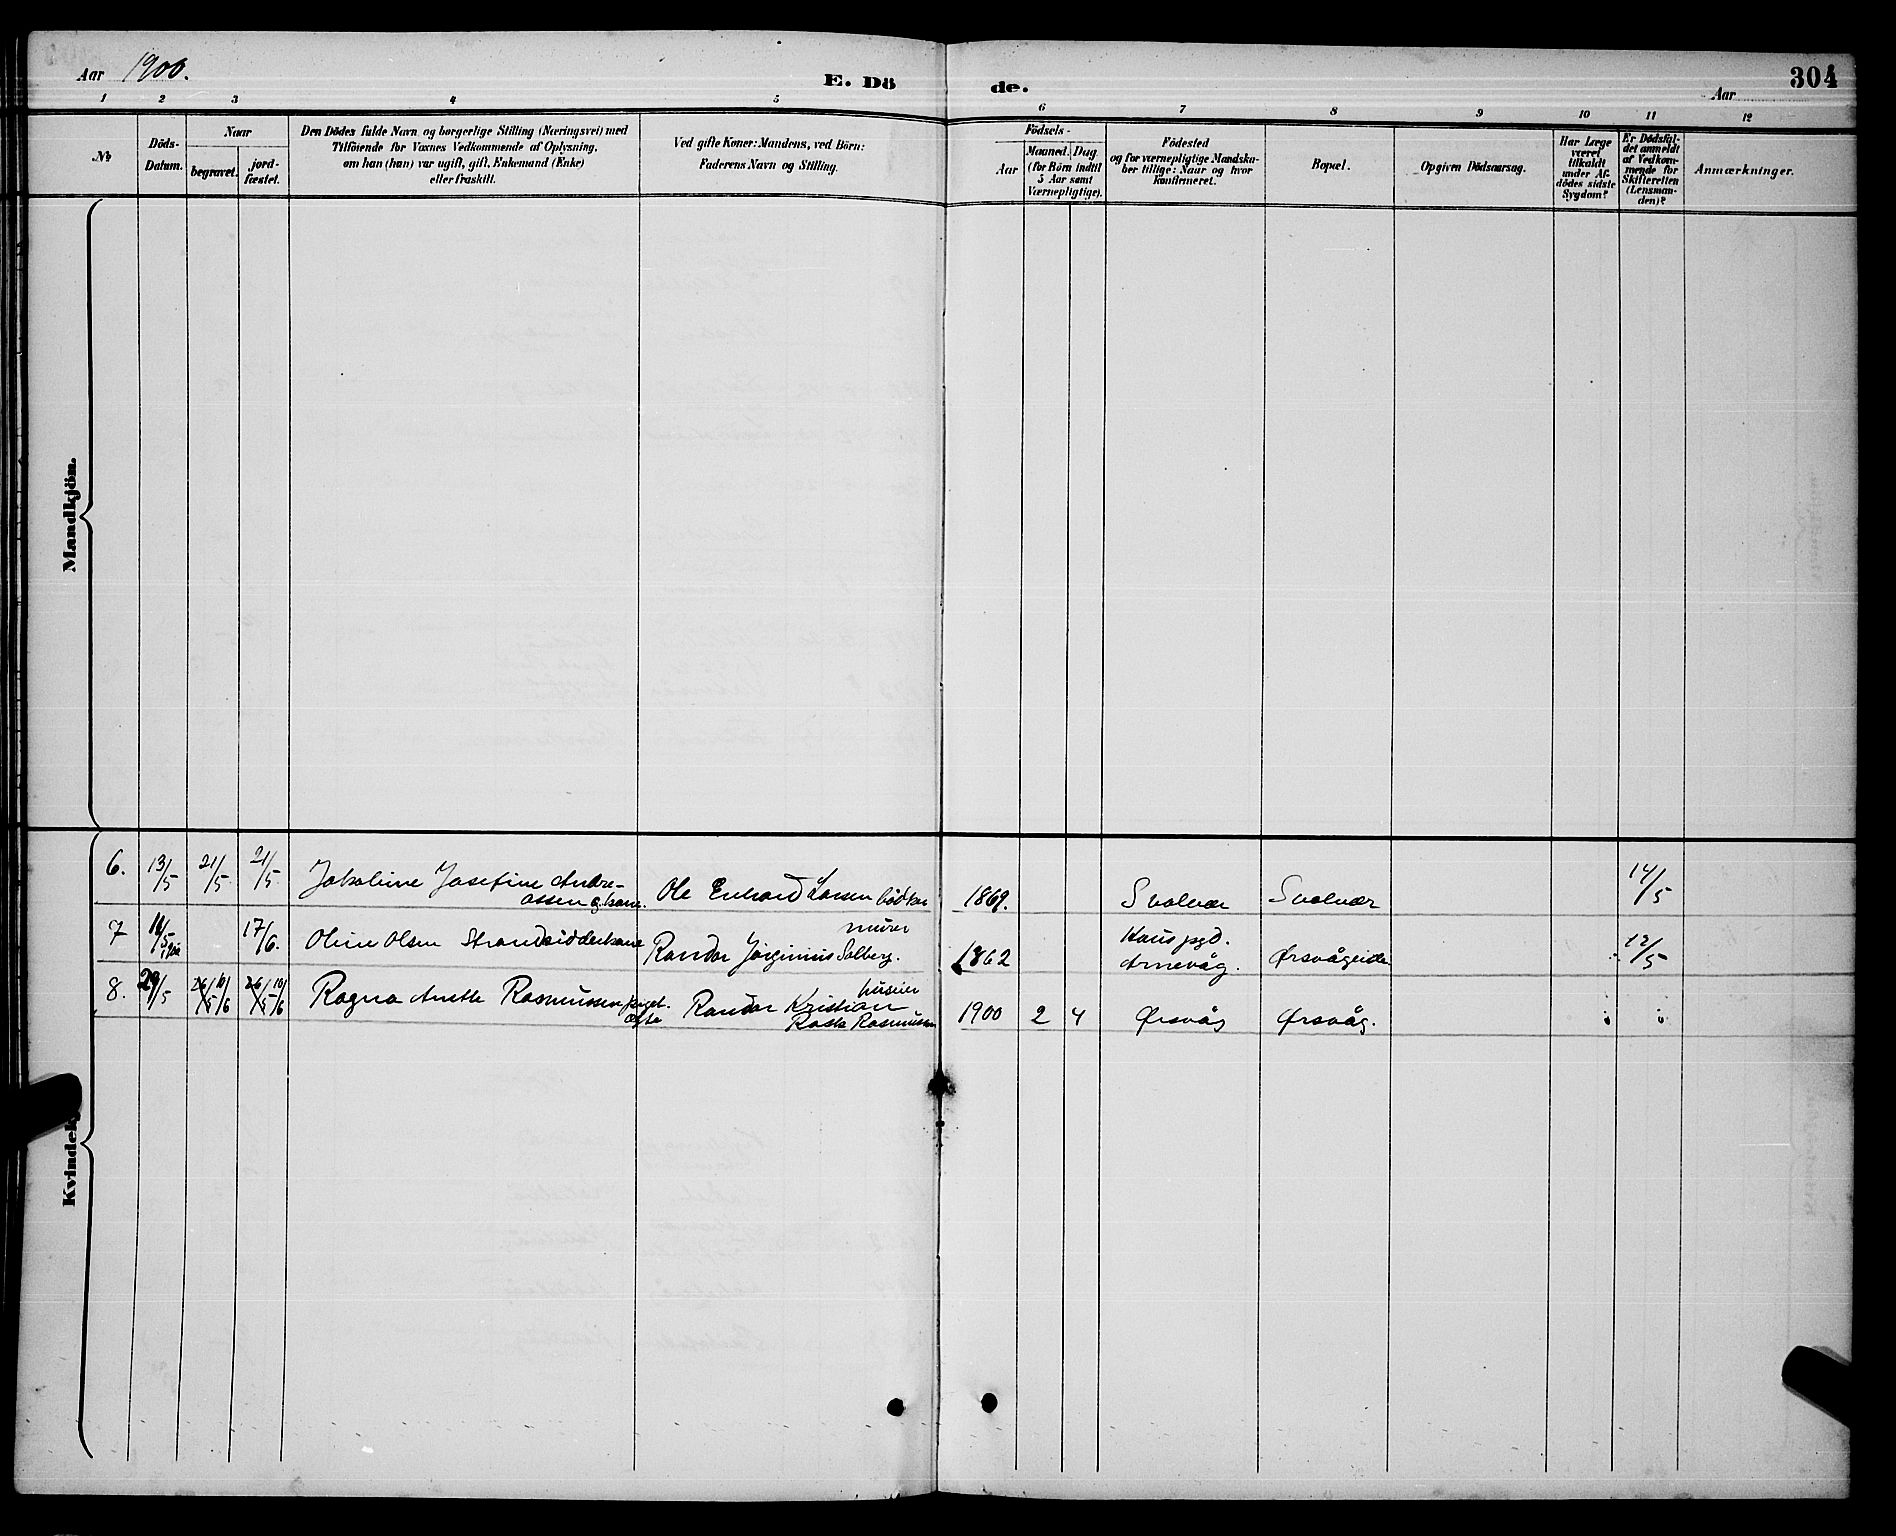 Aar 1900.
E. Dö
de.
Aar
304
1 2 3 4 5 6 7 8 9 10 11 12
№
Döds-
Datum.
Naar
begravet.
jord-
fæstet.
Den Dödes fulde Navn og borgerlige Stilling (Næringsvei) med
Tilföiende for Voxnes Vedkommende af Oplysning,
om han (hun) var ugift, gift, Enkemand (Enke)
eller fraskilt.
Ved gifte Koner: Mandens, ved Börn:
Faderens Navn og Stilling.
Födsels-
Aar
Maaned. Dag
(for Börn indtil
5 Aar samt
Værnepligtige).
Födested
og for værnepligtige Mandska-
ber tillige: Naar og hvor
konfirmeret.
Bopæl.
Opgiven Dödsaarsag.
Har Læge
været
tilkaldt
under Af-
dödes sidste
Sygdom?
Er Dödsfal-
det anmeldt
af Vedkom-
mende for
Skifteretten
(Lensman-
den)?
Anmærkninger.
Mandkjön.
6. 13/5 21/5 21/5 Jakobine Josefine Andre-
assen g. kone. Ole Enhard Larsen bödker 1869. Svolvær Svolvær 14/5
7 17/6. Oline Olsen Strandsidderkone
murer
Randor Jörginius Solberg. 1862
Arnevåg. Ørsvågeide 12/5
8. 29/5 26/5 10/6 26/5 10/6 Ragna Anette Rasmussen pige
huseier
Randor Kristian
Rask Rasmussen 1900 2 4 Ørsvåg Ørsvåg.
Kvindek